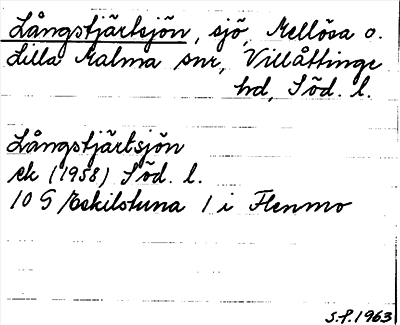 Långstjärtsjön, sjö, Mellösa o.
Lilla Malma snr, Villåttinge
hd, Söd. l.
Långstjärtsjön
ek (1958) Söd. l.
10 G Eskilstuna 1 i Flenmo
S.P. 1963